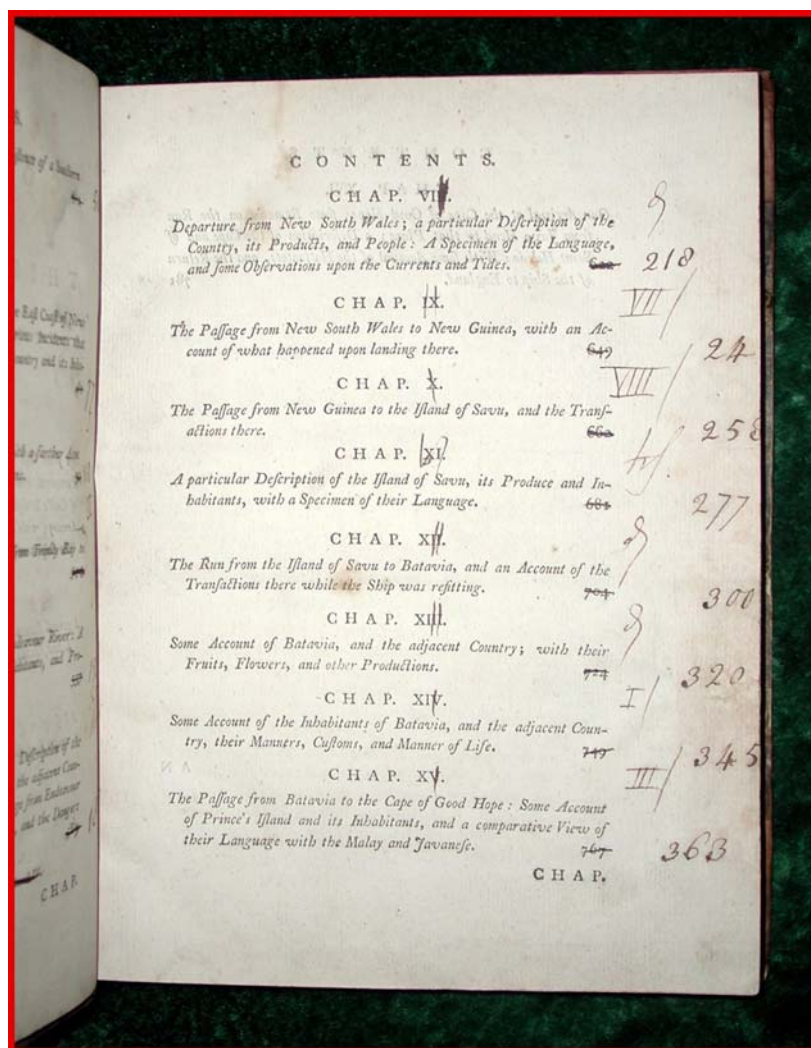 CONTENTS.
CHAP. VIII.
Departure from New South Wales; a particular Deſcription of the
Country, its Products, and People: A Specimen of the Language,
and ſome Obſervations upon the Currents and Tides. 622 218
CHAP. IX. VII
The Paſſage from New South Wales to New Guinea, with an Ac-
count of what happened upon landing there. 649 24
CHAP. X. VIIII
The Paſſage from New Guinea to the Iſland of Savu, and the Tranſ-
actions there. 662 258
CHAP. XI.
A particular Deſcription of the Iſland of Savu, its Produce and In-
habitants, with a Specimen of their Language. 681 277
CHAP. XII.
The Run from the Iſland of Savu to Batavia, and an Account of the
Tranſactions there while the Ship was refitting. 704 300
CHAP. XIII.
Some Account of Batavia, and the adjacent Country; with their
Fruits, Flowers, and other Productions. 724 320
CHAP. XIV. I
Some Account of the Inhabitants of Batavia, and the adjacent Coun-
try, their Manners, Cuſtoms, and Manner of Life. 749 345
CHAP. XV. III
The Paſſage from Batavia to the Cape of Good Hope: Some Account
of Prince's Iſland and its Inhabitants, and a comparative View of
their Language with the Malay and Javaneſe. 767 363
CHAP.
CHAP.